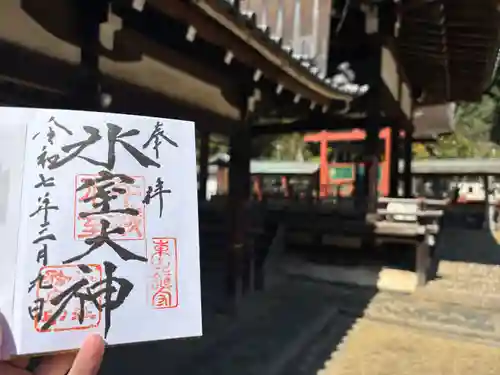 奉拝
氷室大神
令和七年三月九日